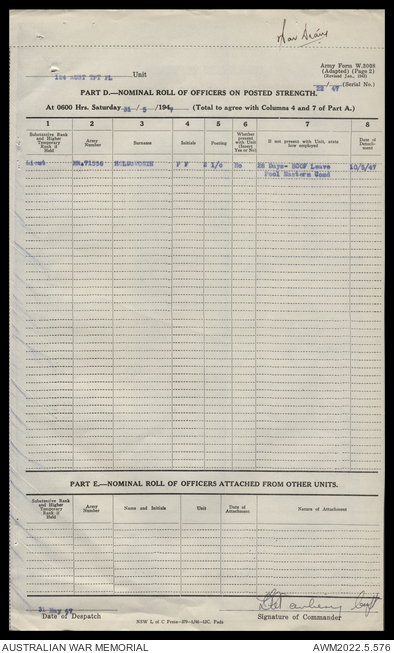 Army Form W.3008
(Adapted) (Page 2)
(Revised Jan., 1945)
124 AUST TPT PL Unit
22/47 (Serial No.)
PART D.—NOMINAL ROLL OF OFFICERS ON POSTED STRENGTH.
At 0600 Hrs. Saturday 31/5/1947 (Total to agree with Columns 4 and 7 of Part A.)
1 2 3 4 5 6 7 8
Substantive Rank and Higher Temporary Rank if Held
Army Number
Surname
Initials
Posting
Whether present with Unit (Insert Yes or No)
If not present with Unit, state how employed
Date of Detachment
Lieut
HOLDSWORTH
P F
2 I/c
No
28 Days- BCOF Leave
10/5/47
Pool Eastern Comd
PART E.—NOMINAL ROLL OF OFFICERS ATTACHED FROM OTHER UNITS.
Substantive Rank and Higher Temporary Rank if Held
Army Number
Name and Initials
Unit
Date of Attachment
Nature of Attachment
31 May 47
Date of Despatch
Capt
Signature of Commander
AUSTRALIAN WAR MEMORIAL
AWM2022.5.576